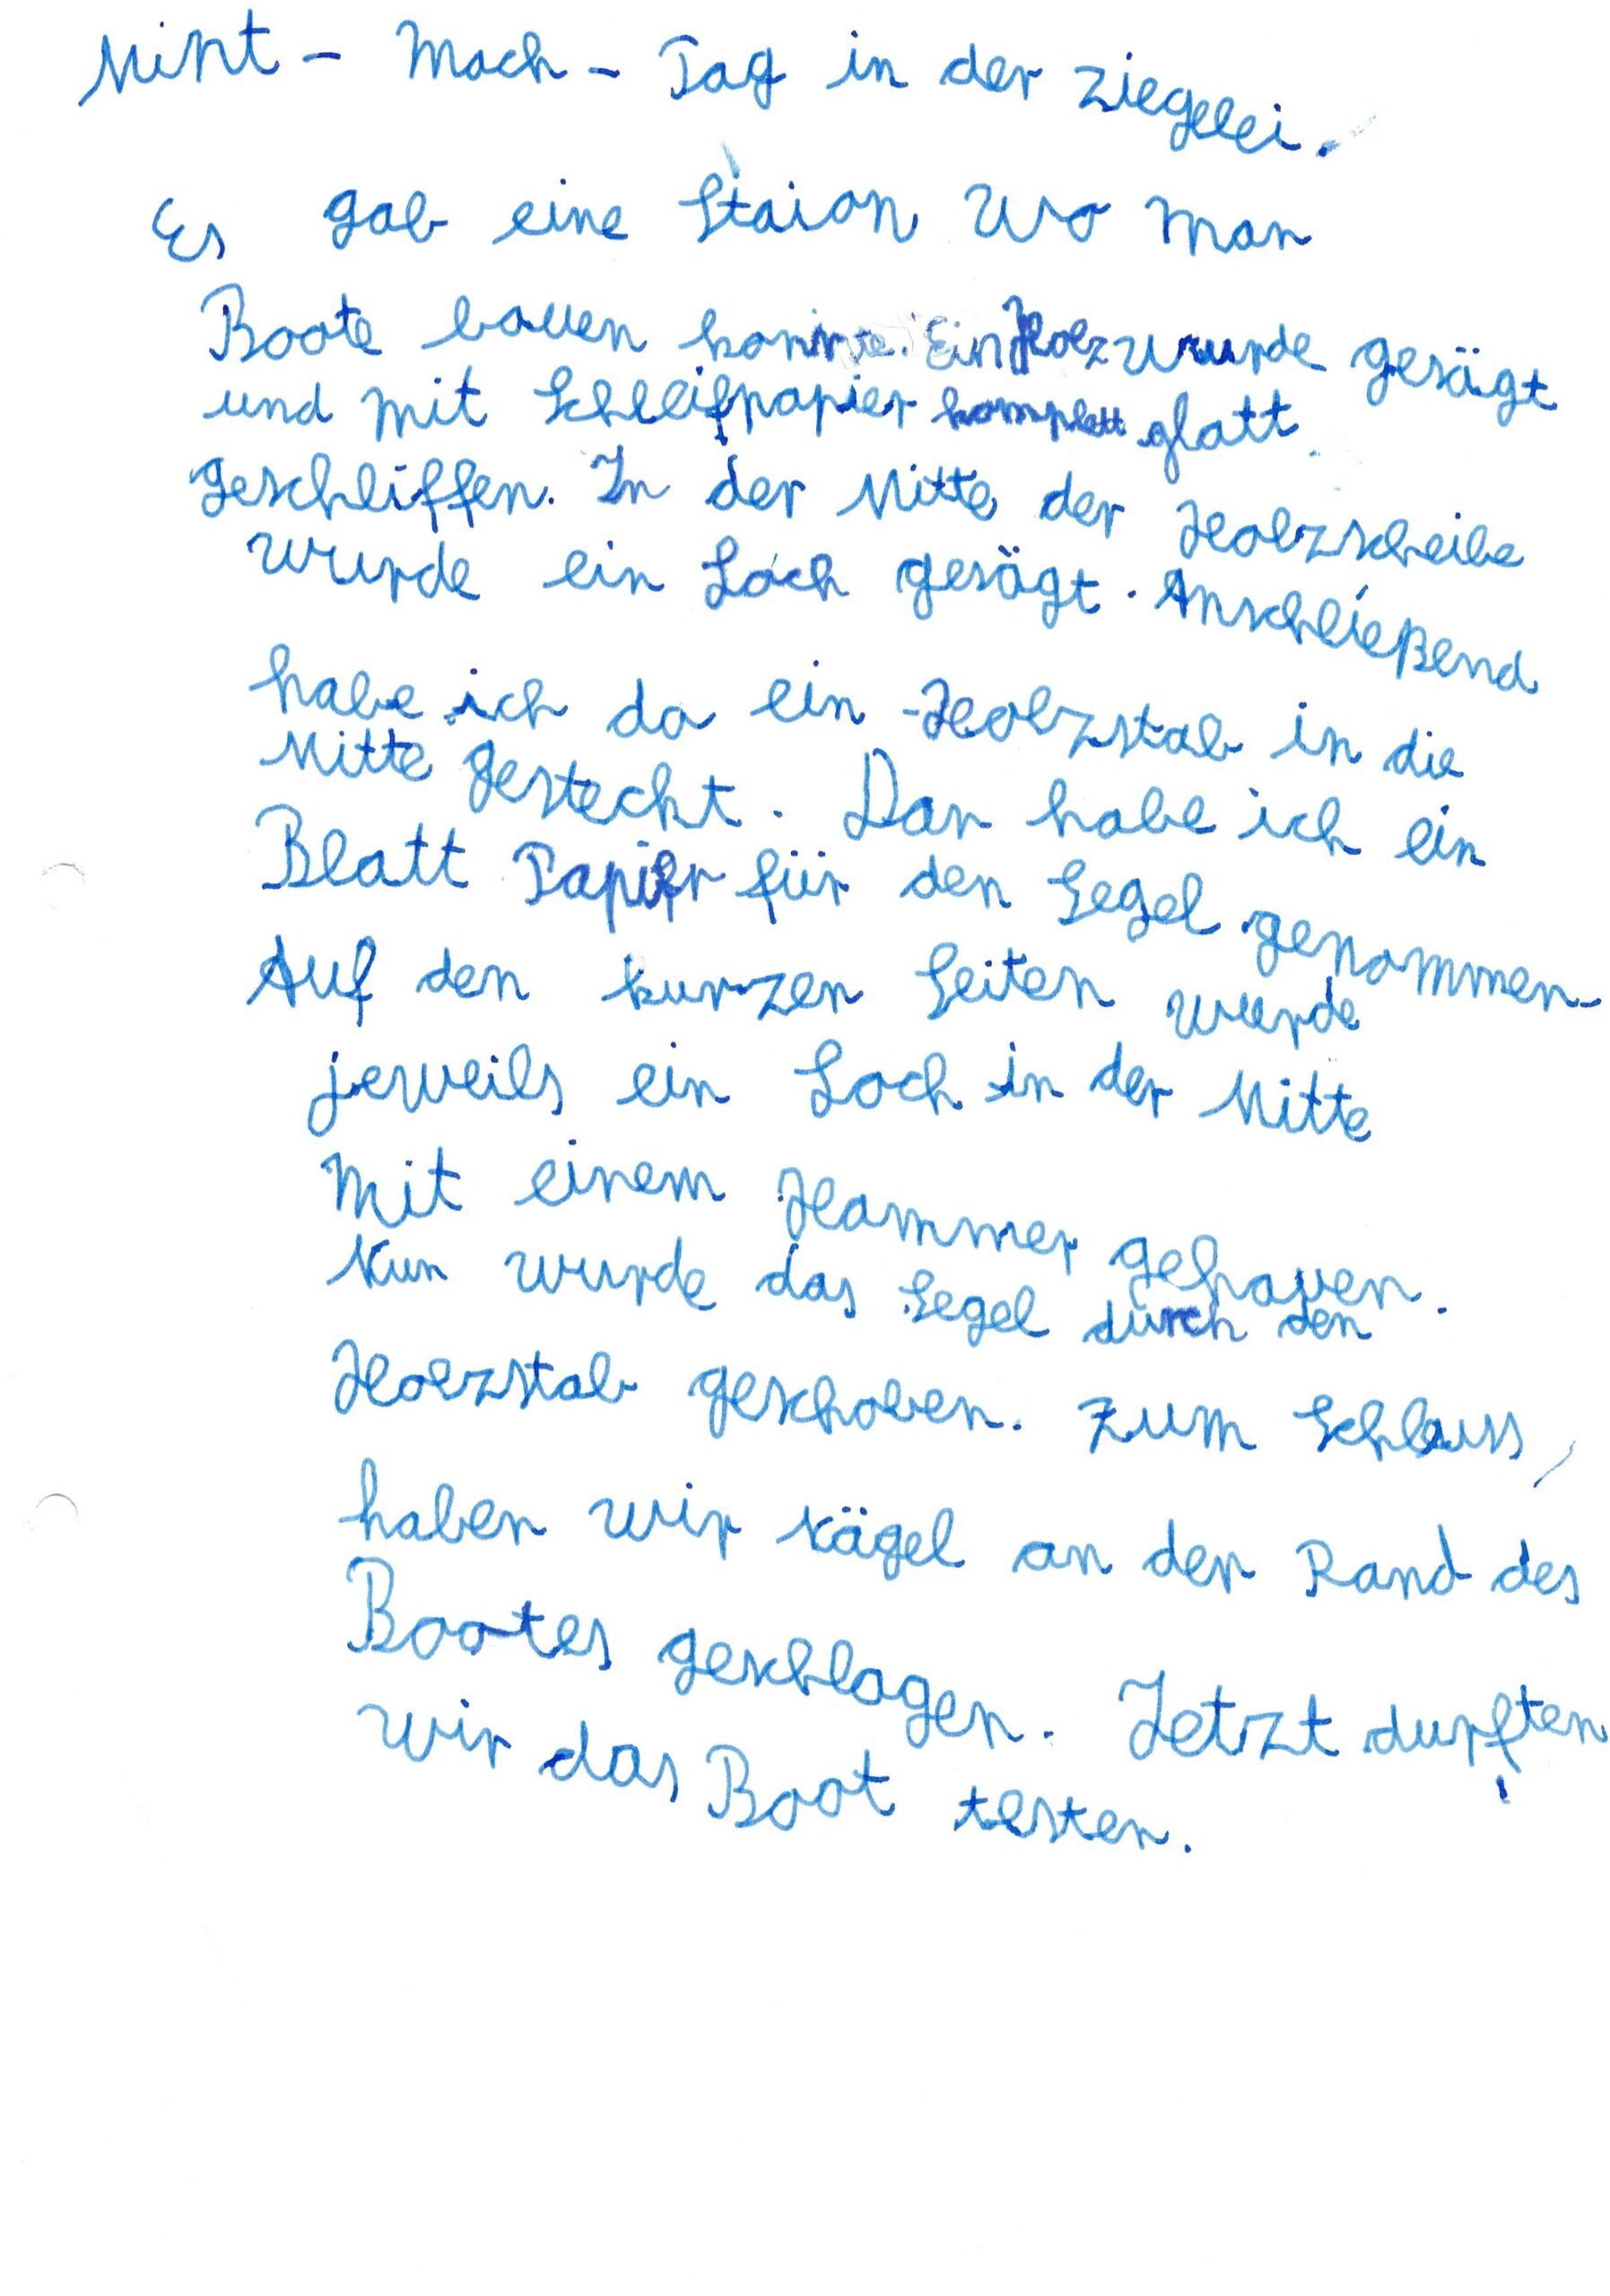 Mint - Mach - Tag in der Ziegelei.
Es gab eine Staion wo man
Boote bauen konnte. Ein Holz wurde gesägt
und mit Schleifpapier komplett glatt
geschliffen. In der Mitte der Holzscheibe
wurde ein Loch gesägt. Anschließend
habe ich da ein Holzstab in die
Mitte gesteckt. Dan habe ich ein
Blatt Papier für den Segel genommen.
Auf den kurzen Seiten wurde
jeweils ein Loch in der Mitte
mit einem Hammer gehauen.
Nun wurde das Segel durch den
Holzstab geschoben. Zum Schluss
haben wir Nägel an den Rand des
Bootes geschlagen. Jetzt durften
wir das Boot testen.